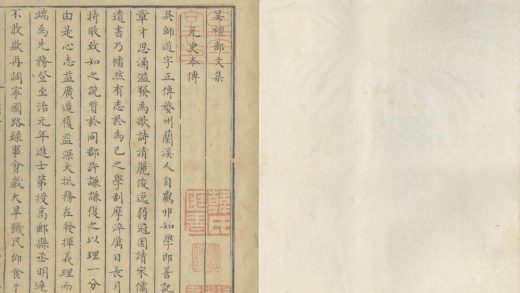 吳禮部文集
元史本傳
吳師道字正傳婺州蘭溪人自羈丱知學即善記
章才思涌溢發為歌詩清麗俊逸弱冠因讀宋儒
遺書乃幡然有志於為己之學刮摩淬厲日長月
持敬致知之說質於同郡許謙謙復之以理一分
由是心志益廣造履益深大抵務在發揮義理而
端為先務登至治元年進士第授高郵縣丞明達
不敢欺再調寧國路錄事會歲大旱饑民仰食于